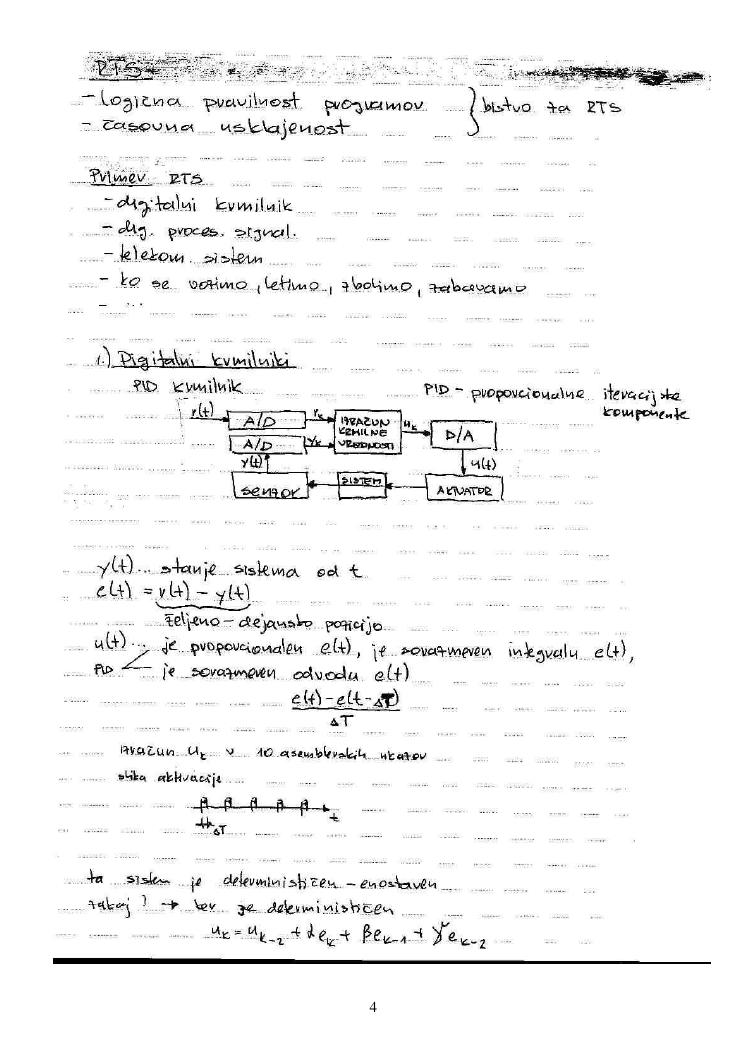 RTS
- logična pravilnost programov } bistvo za RTS
- časovna usklajenost
Primer RTS
- digitalni krmilnik
- dig. proces. signal.
- telekom. sistem
- ko se vozimo, letimo, zbolimo, zabavamo
- ...
1.) Digitalni krmilniki
PID krmilnik
PID - proporcionalne iteracijske
komponente
r(t) A/D rk IZRAČUN KRMILNE VREDNOSTI uk D/A
A/D yk
y(t) u(t)
SENZOR SISTEM AKTUATOR
y(t) ... stanje sistema od t
e(t) = r(t) - y(t)
željeno - dejansko pozicijo
u(t) ... je proporcionalen e(t), je sorazmeren integralu e(t),
PID je sorazmeren odvodu e(t)
e(t) - e(t - ΔT)
ΔT
izračun uk v 10 asemblerskih ukazov
slika aktivacije
t
ΔT
ta sistem je determinističen - enostaven
zakaj? → ker je determinističen
uk = uk-2 + αek + βek-1 + γek-2
4